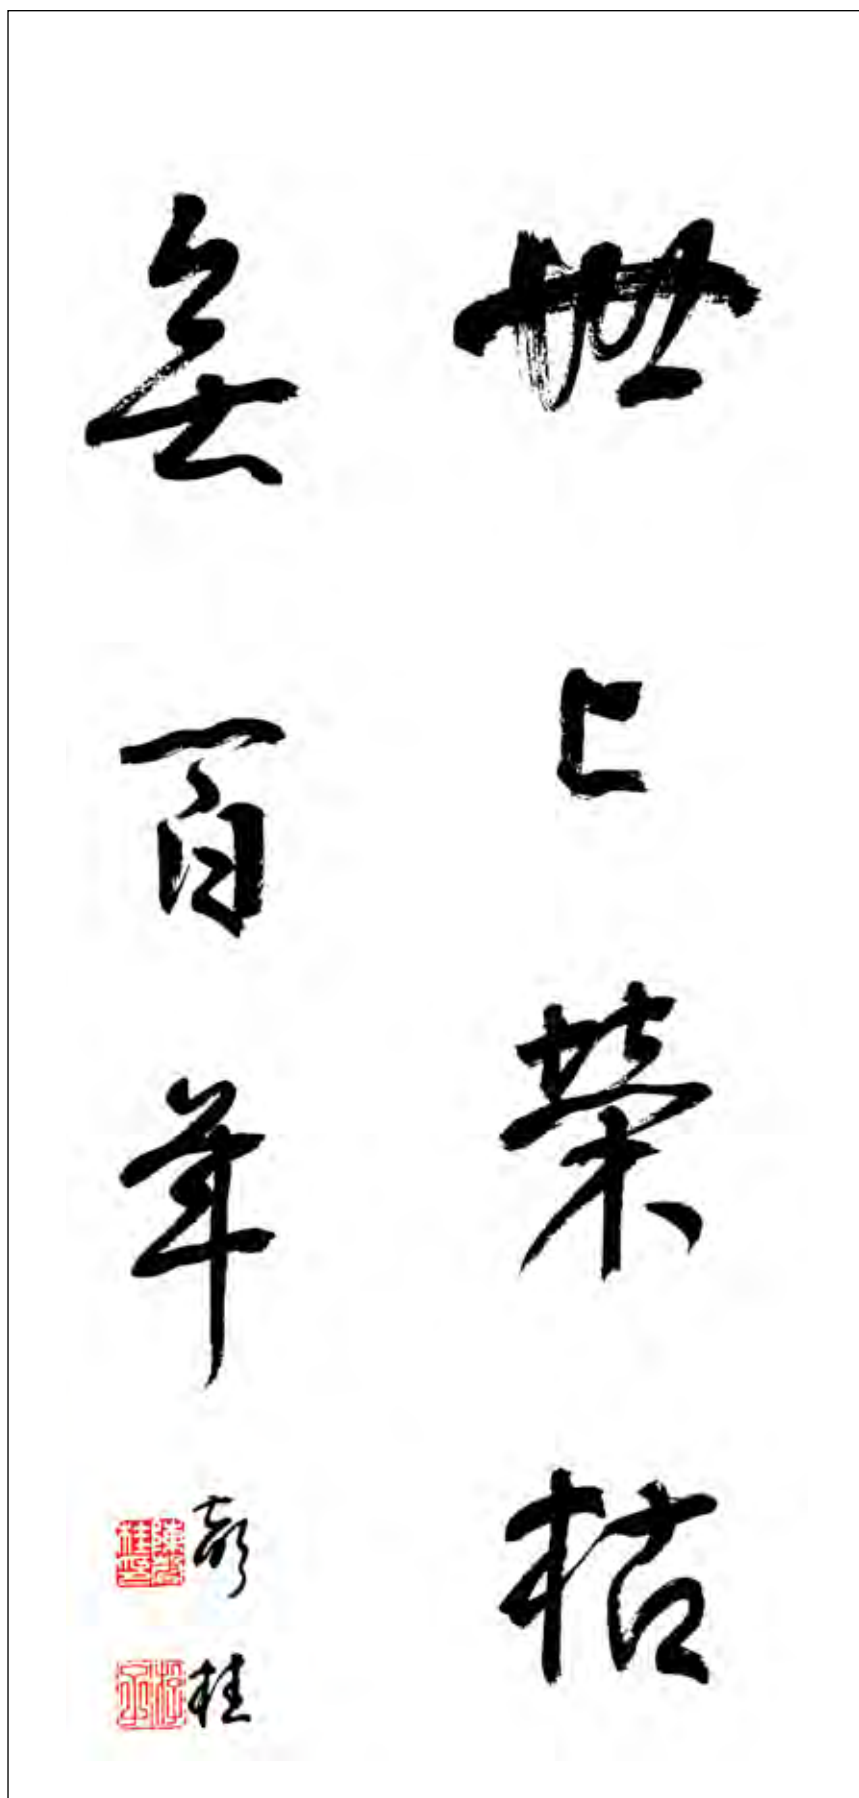 世上榮枯
無百年
桂